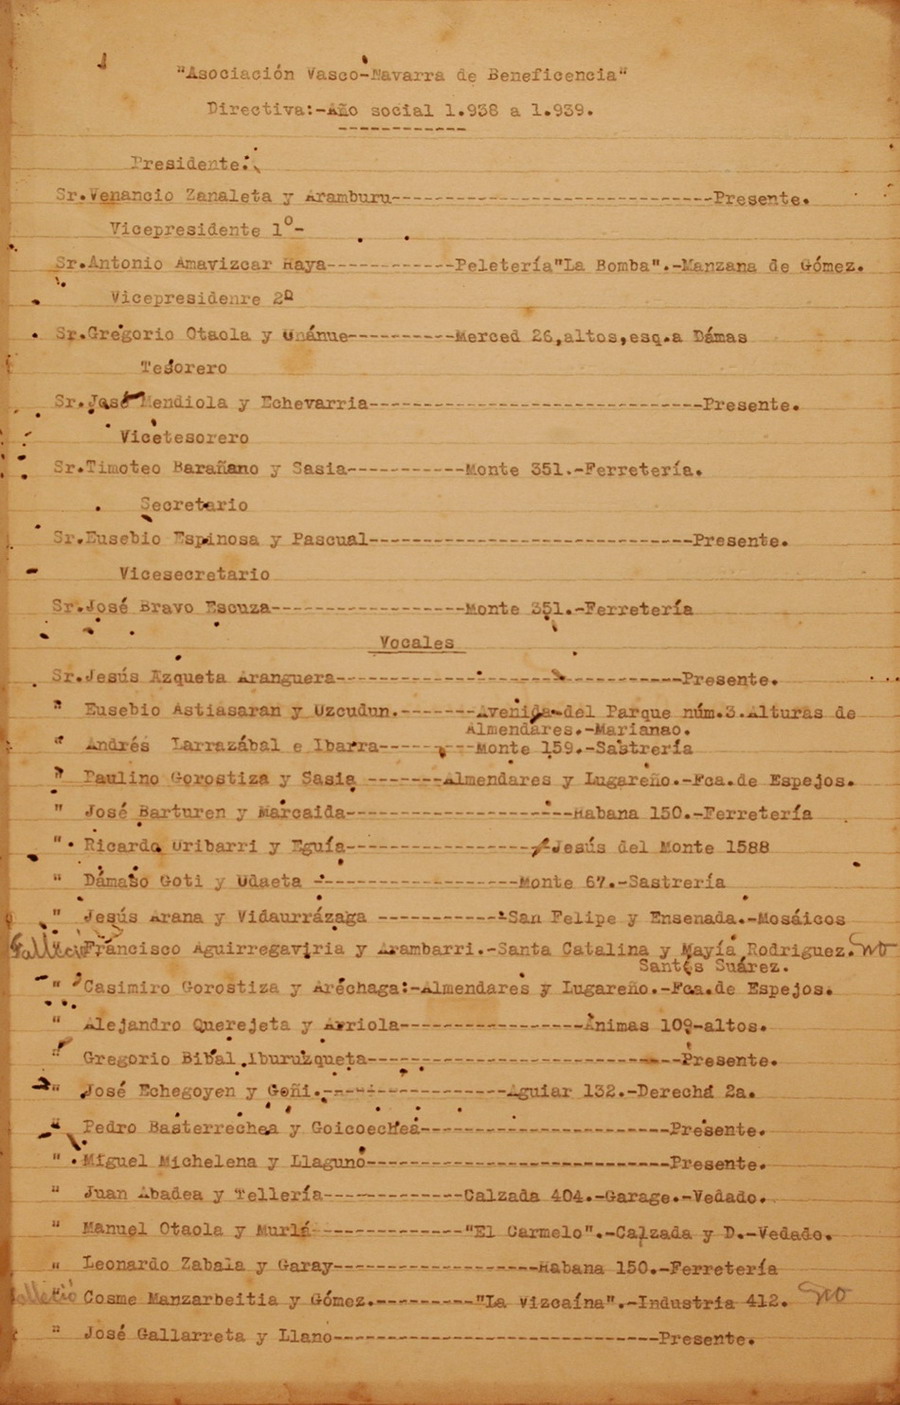 "Asociación Vasco-Navarra de Beneficencia"
Directiva:-Año social 1.938 a 1.939.
------------
Presidente:
Sr.Venancio Zanaleta y Aramburu------------------------------Presente.
Vicepresidente 1º-
Sr.Antonio Amavizcar Haya------------Peletería"La Bomba".-Manzana de Gómez.
Vicepresidenre 2º
Sr.Gregorio Otaola y Unánue----------Merced 26,altos,esq.a Dámas
Tesorero
Sr.José Mendiola y Echevarria-------------------------------Presente.
Vicetesorero
Sr.Timoteo Barañano y Sasia-----------Monte 351.-Ferretería.
Secretario
Sr.Eusebio Espinosa y Pascual------------------------------Presente.
Vicesecretario
Sr.José Bravo Escuza------------------Monte 351.-Ferretería
Vocales
Sr.Jesús Azqueta Aranguera--------------------------------Presente.
" Eusebio Astiasaran y Uzcudun.-------Avenida-del Parque núm.3.Alturas de
Almendares.-Marianao.
" Andrés Larrazábal e Ibarra---------Monte 159.-Sastrería
" Paulino Gorostiza y Sasia -------Almendares y Lugareño.-Fca.de Espejos.
" José Barturen y Marcaida---------------------Habana 150.-Ferretería
" Ricardo Uribarri y Eguía-------------------Jesús del Monte 1588
" Dámaso Goti y Udaeta -------------------Monte 67.-Sastrería
" Jesús Arana y Vidaurrázaga ------------San Felipe y Ensenada.-Mosáicos
Falleció Francisco Aguirregaviria y Arambarri.-Santa Catalina y Mayía Rodriguez. NO
Santos Suárez.
" Casimiro Gorostiza y Aréchaga:-Almendares y Lugareño.-Fca.de Espejos.
" Alejandro Querejeta y Arriola-----------------Animas 109-altos.
" Gregorio Bibal Iburuzqueta-----------------------------Presente.
" José Echegoyen y Goñi.------------------Aguiar 132.-Derechá 2a.
" Pedro Basterrechea y Goicoechea-----------------------Presente.
" Miguel Michelena y Llaguno----------------------------Presente.
" Juan Abadea y Tellería-------------Calzada 404.-Garage.-Vedado.
" Manuel Otaola y Murlá--------------"El Carmelo".-Calzada y D.-Vedado.
" Leonardo Zabala y Garay-------------------Habana 150.-Ferretería
Falleció " Cosme Manzarbeitia y Gómez.---------"La Vizcaína".-Industria 412. NO
" José Gallarreta y Llano------------------------------Presente.